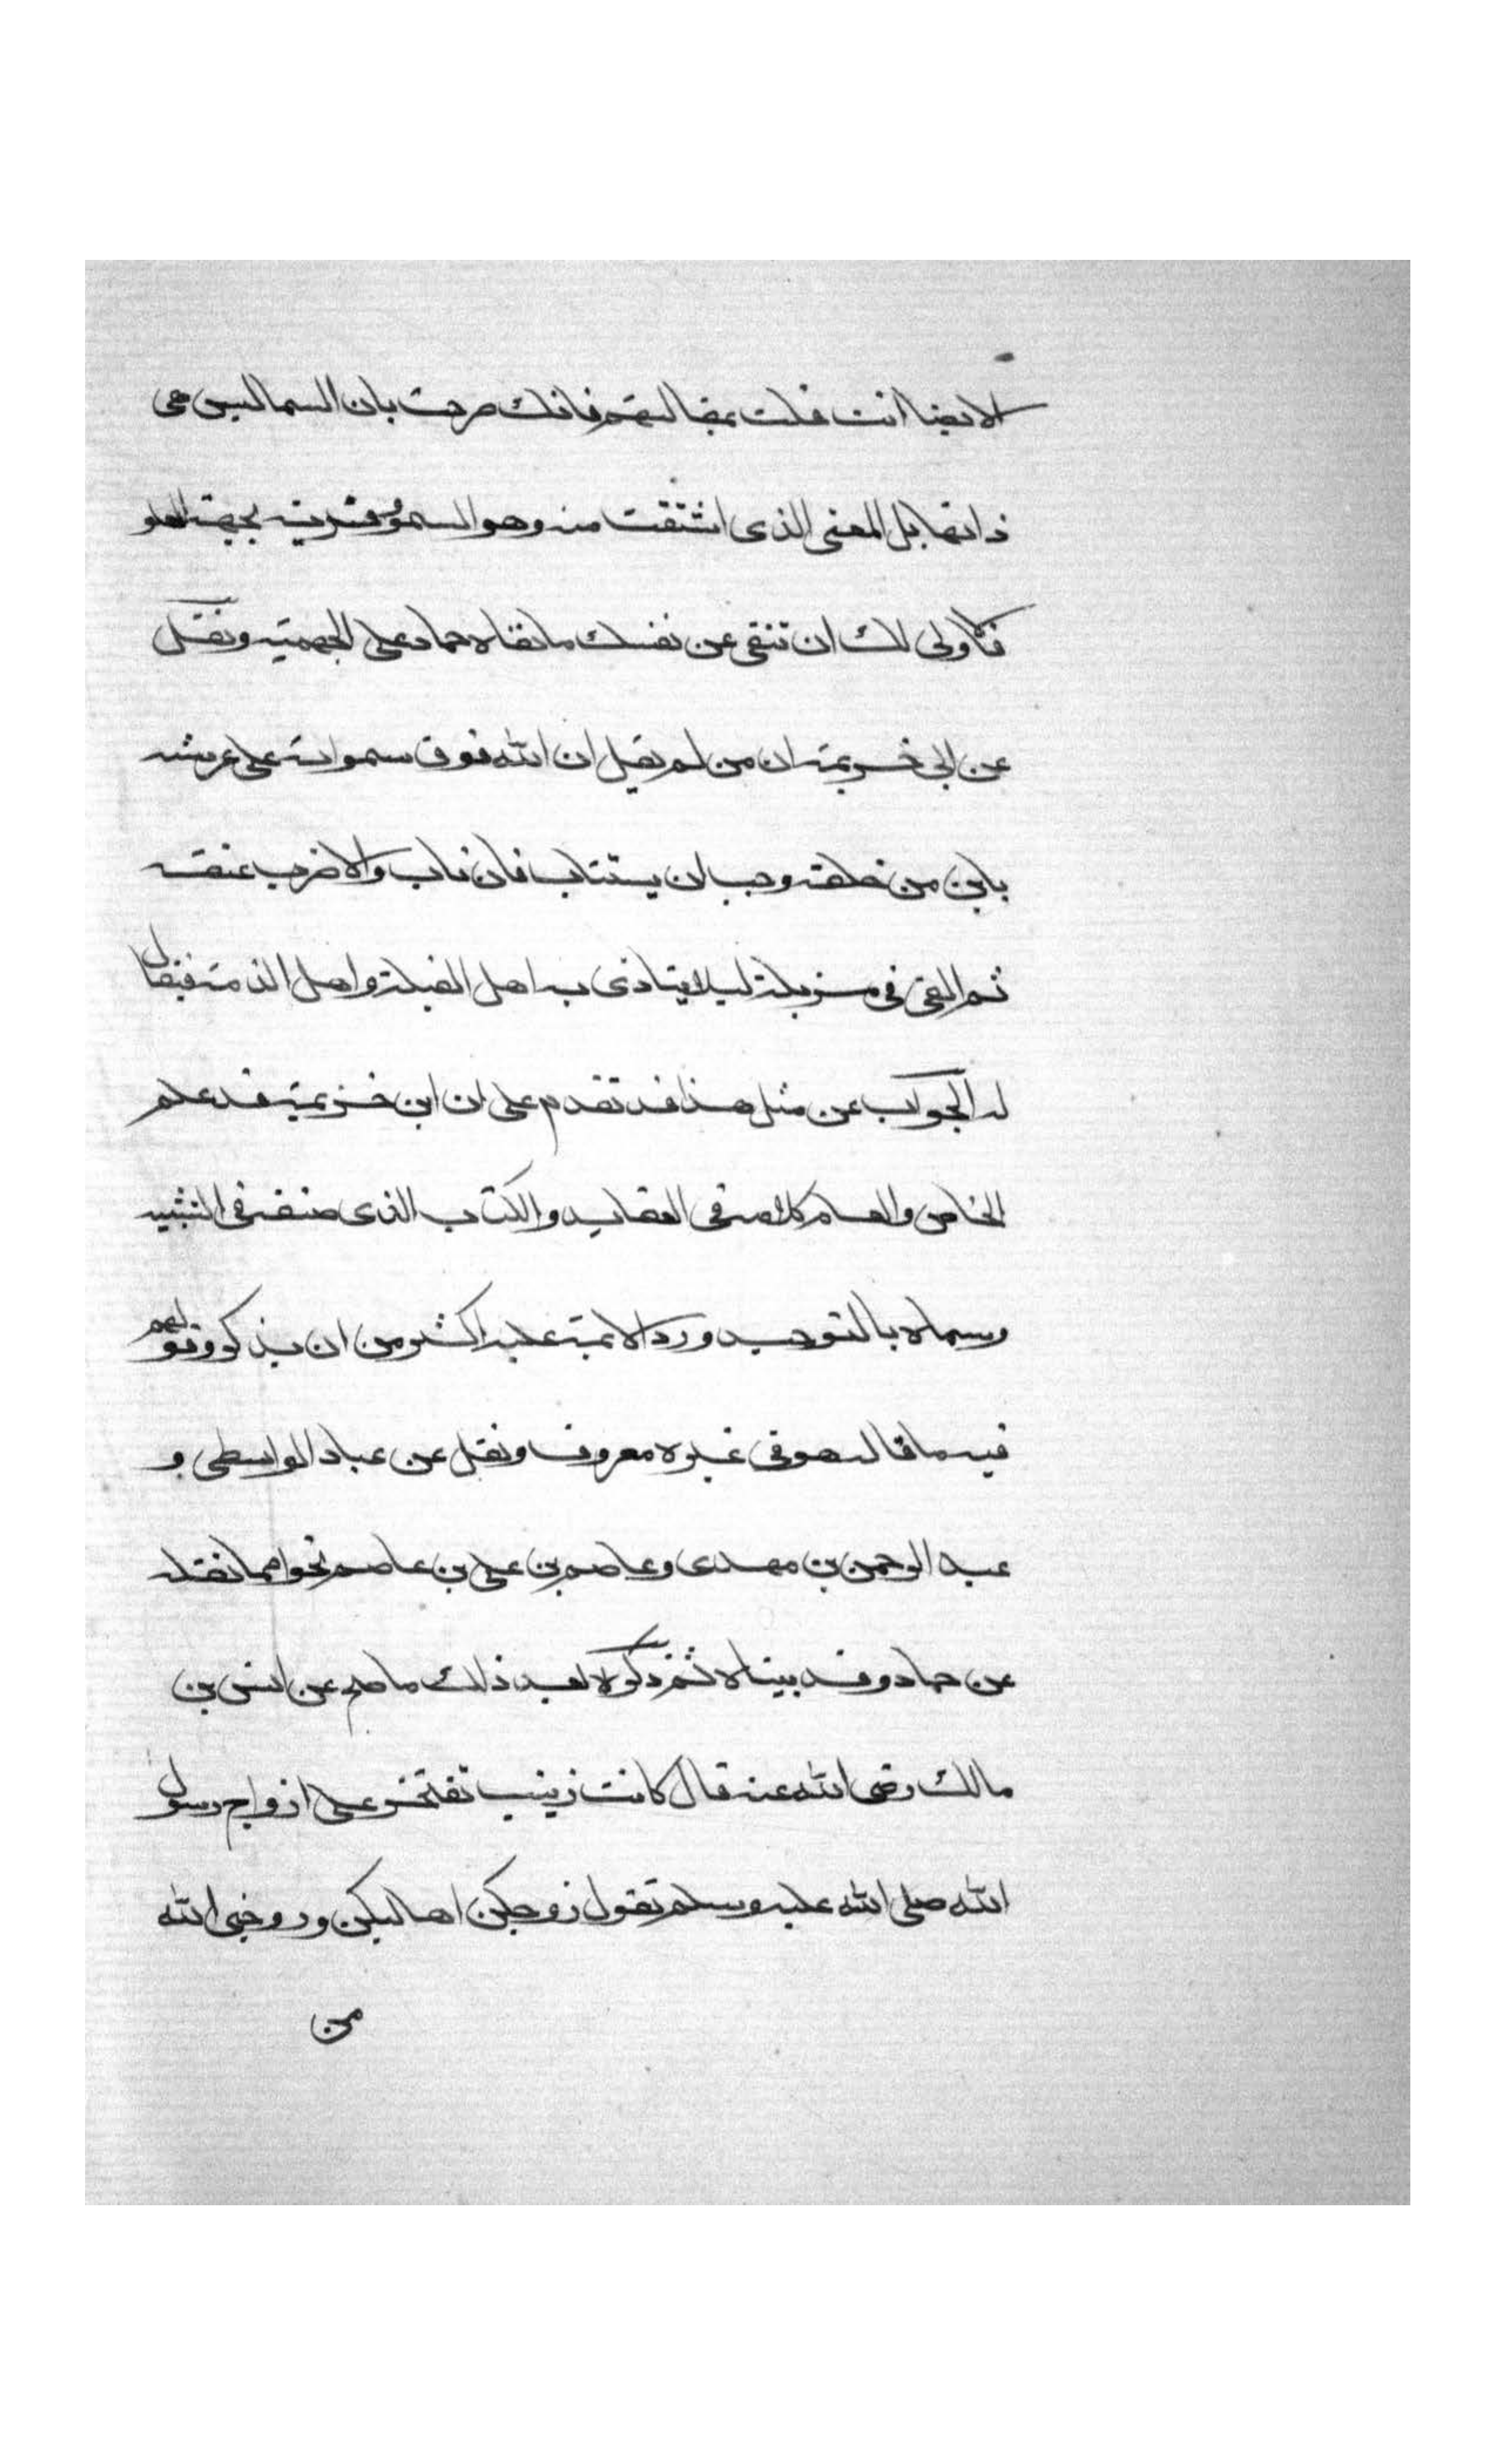 لايضا انت قلت بمقالتهم فانك صرحت بان السما ليس هى
ذاتها بل المعنى الذى اشتقت منه وهو السمو وفسرته بجهة العلو
فالاولى لك ان تنقى عن نفسك ما نقله حماد على الجهمية ونقل
عن ابى خزيمة ان من لم يقل ان الله فوق سمواته على عرشه
باين من خلقه وجب ان يستتاب فان تاب والا ضرب عنقه
ثم القى فى مزبلة ليلا يتاذى به اهل القبلة واهل الذمة فيقال
له الجواب عن مثل هذا قد تقدم على ان ابن خزيمة قد علم
الخاص والعام كلامه فى العقايد والكتاب الذى صنفه فى التشبيه
وسماه بالتوحيد ورد الايمة عليه اكثر من ان يذكر وقولهم
فيه ما قاله هو فى غيره معروف ونقل عن عباد الواسطى و
عبد الرحمن بن مهدى وعاصم بن على بن عاصم نحوا مما نقله
عن حماد وقد بيناه ثم ذكر بعد ذلك ما صح عن انس بن
مالك رضى الله عنه قال كانت زينب تفتخر على ازواج رسول
الله صلى الله عليه وسلم تقول زوجكن اهاليكن وزوجنى الله
من